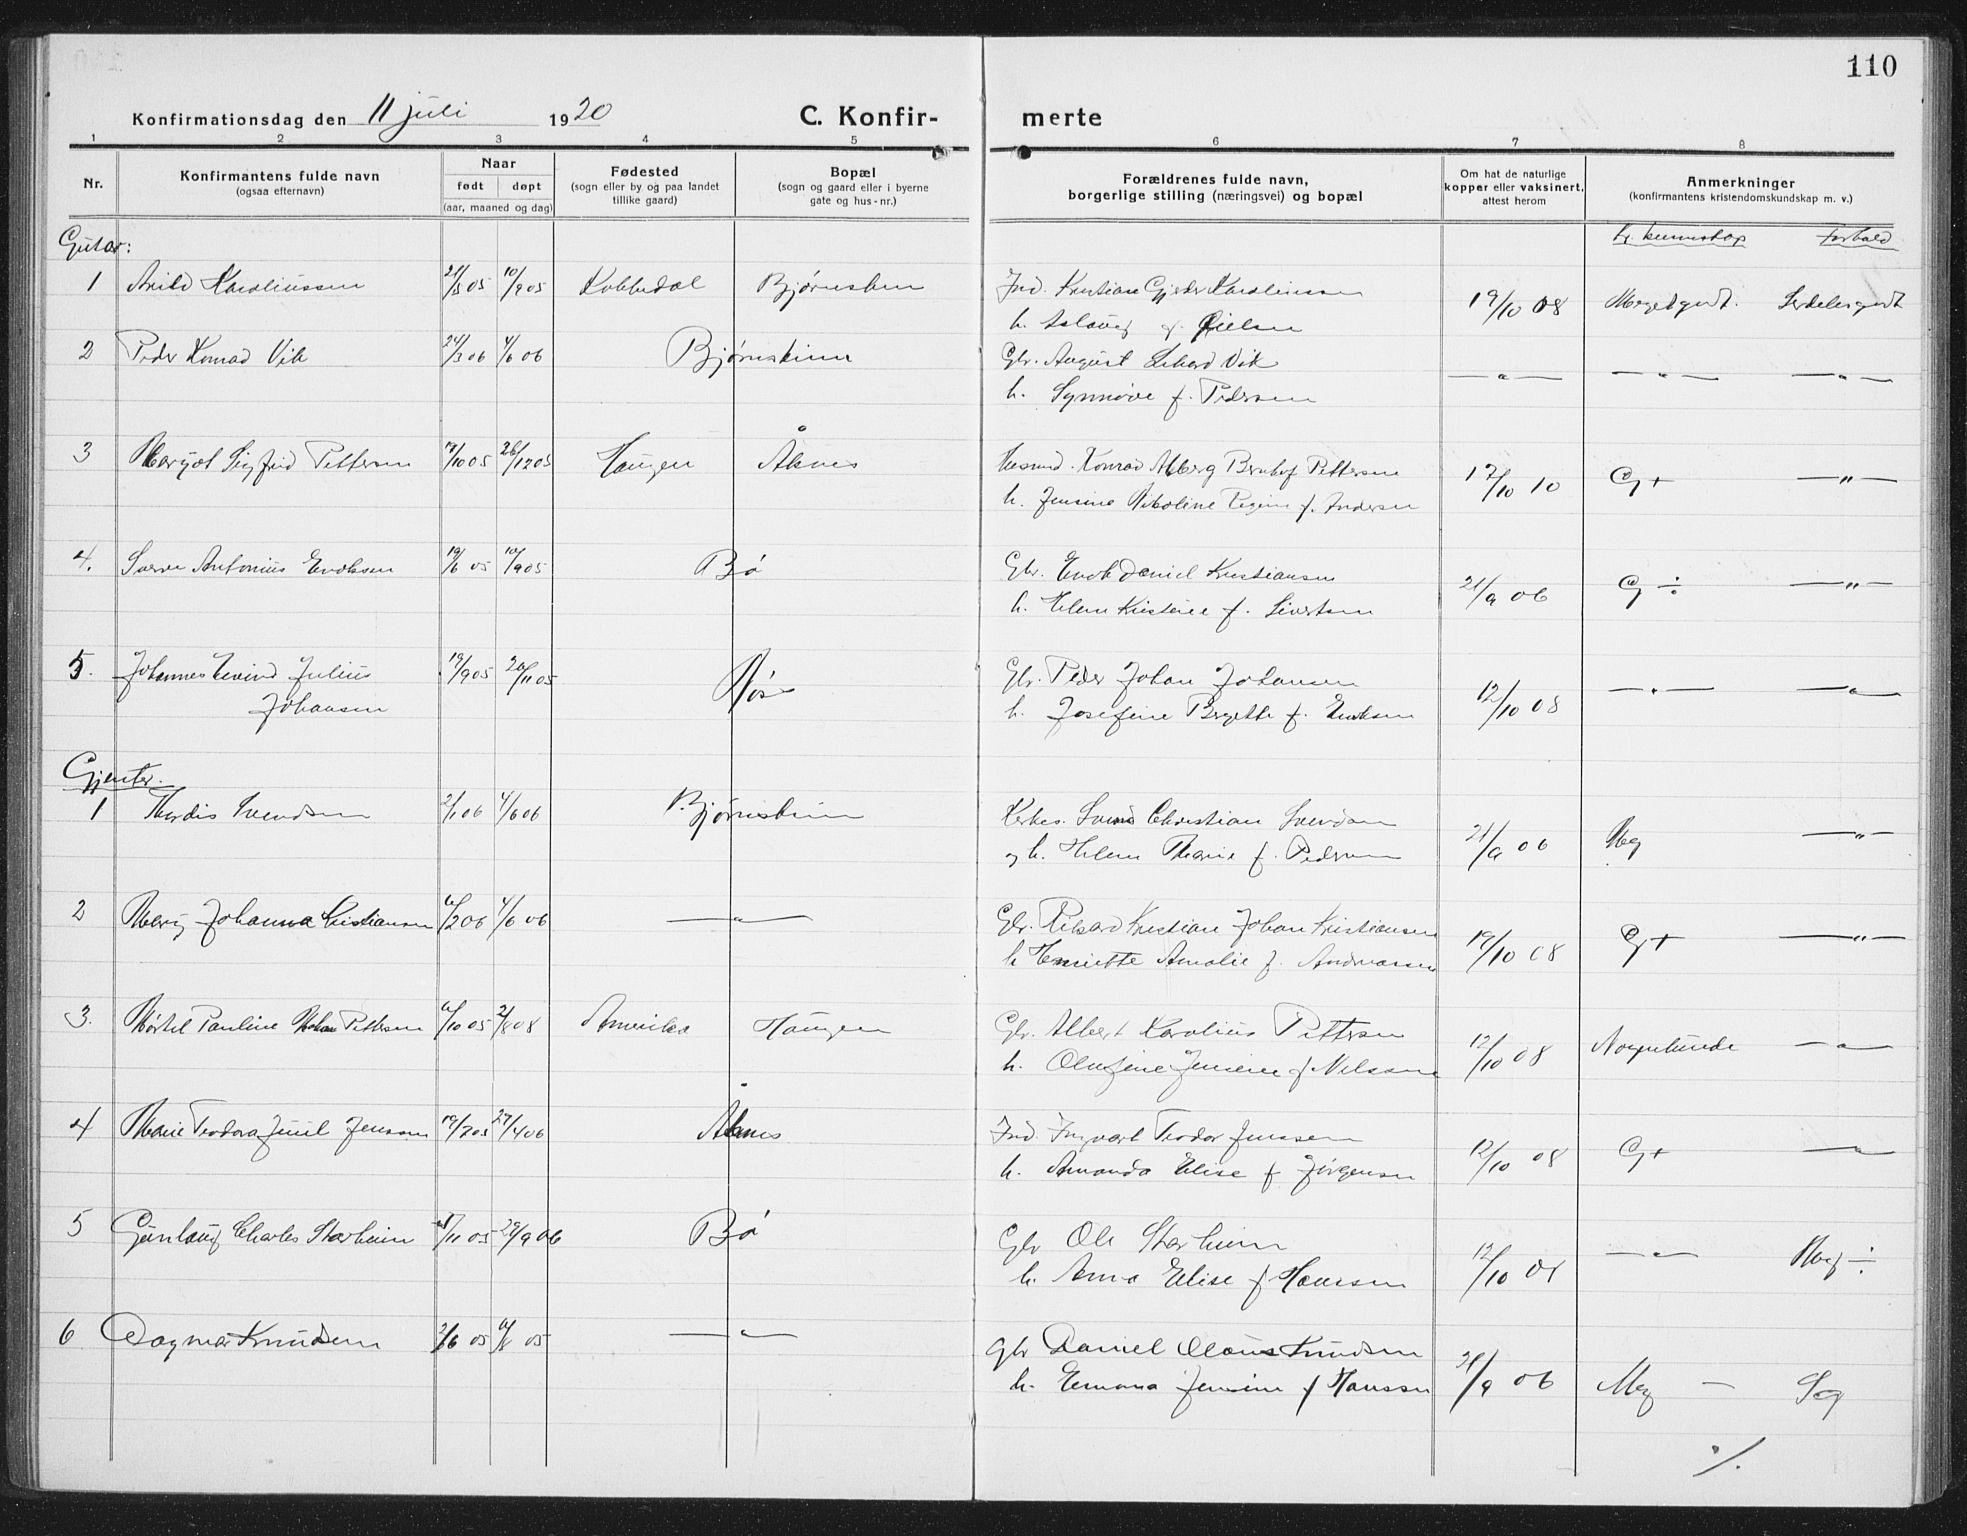 110
Konfirmationsdag den 11 juli 1920
C. Konfir-
merte
1 2 3 4 5 6 7 8
Nr.
Konfirmantens fulde navn
(ogsaa efternavn)
Naar
født døpt
(aar, maaned og dag)
Fødested
(sogn eller by og paa landet
tillike gaard)
Bopæl
(sogn og gaard eller i byerne
gate og hus-nr.)
Forældrenes fulde navn,
borgerlige stilling (næringsvei) og bopæl
Om hat de naturlige
kopper eller vaksinert,
attest herom
Anmerkninger
(konfirmantens kristendomskundskap m. v.)
Gutar:
kr. kunnskap forhold
1 Arild Karoliussen 21/5 05 10/9 05 Kobbedal Bjørnskinn
Ind. Kristian Karoliussen 19/10 08 Meget godt. Serdeles godt
h. Aslaug f.
2 Peder Konrad Vik 24/3 06 4/6 06 Bjørnskinn
Gbr. August Vik —"— —"— —"—
h. Synnøve f. Pedersen
3 Margot Sigfrid Pettersen 19/10 05 26/12 05 Haugen Åknes
Husmd. Konrad Alberg Bernhof Pettersen 17/10 10 G+ —"—
h. Jensine Nikoline Regine f. Andersen
4. Sverre Antonius Enoksen 19/6 05 10/9 05 Bø
Gbr. Enok Daniel Kristiansen 21/9 06 G ÷ —"—
h. Helene Kristine f. Sivertsen
5. Johannes Eivind Julius 19/9 05 20/11 05
Johansen
Gbr. Peder Johan Johansen 12/10 08 —"— —"—
h. Josefine Bergette f. Enoksen
Gjenter.
1 Thordis Svendsen 2/1 06 4/6 06 Bjørnskinn
Kirkes. Svend Christian Svendsen 21/9 06 Meg —"—
og h. Helene Marie f. Pedersen
2 Mary Johanna Kristiansen 6/2 06 4/6 06 —"—
Gbr. Rikard Kristian Johan Kristiansen 19/10 08 G+ —"—
h Henriette Amalie f. Andreassen
3. Pauline Pettersen 6/10 05 2/8 08 Amerika Haugen
Gbr. Albert Karolius Pettersen 12/10 08 Nogenlunde —"—
h. Olufine Jensine f Nilssen
4 Marie Teodora Jenssen 19/7 05 27/4 06 Åknes
Ind. Ingvart Teodor Jenssen 12/10 08 G+ —"—
h. Amanda Elise f Jørgensen
5 Gunlaug Charles Starheim /11 05 29/9 06 Bø
Gbr Ole Starheim 12/10 08 —"— Meg ÷
h. Anna Elise f Hanssen
6 Dagmar Knudsen 2/6 05 6/8 05 —"—
Gbr Daniel Olaus Knudsen 21/9 06 Meg — Sg
h. Emma Jensine f Hanssen
./.